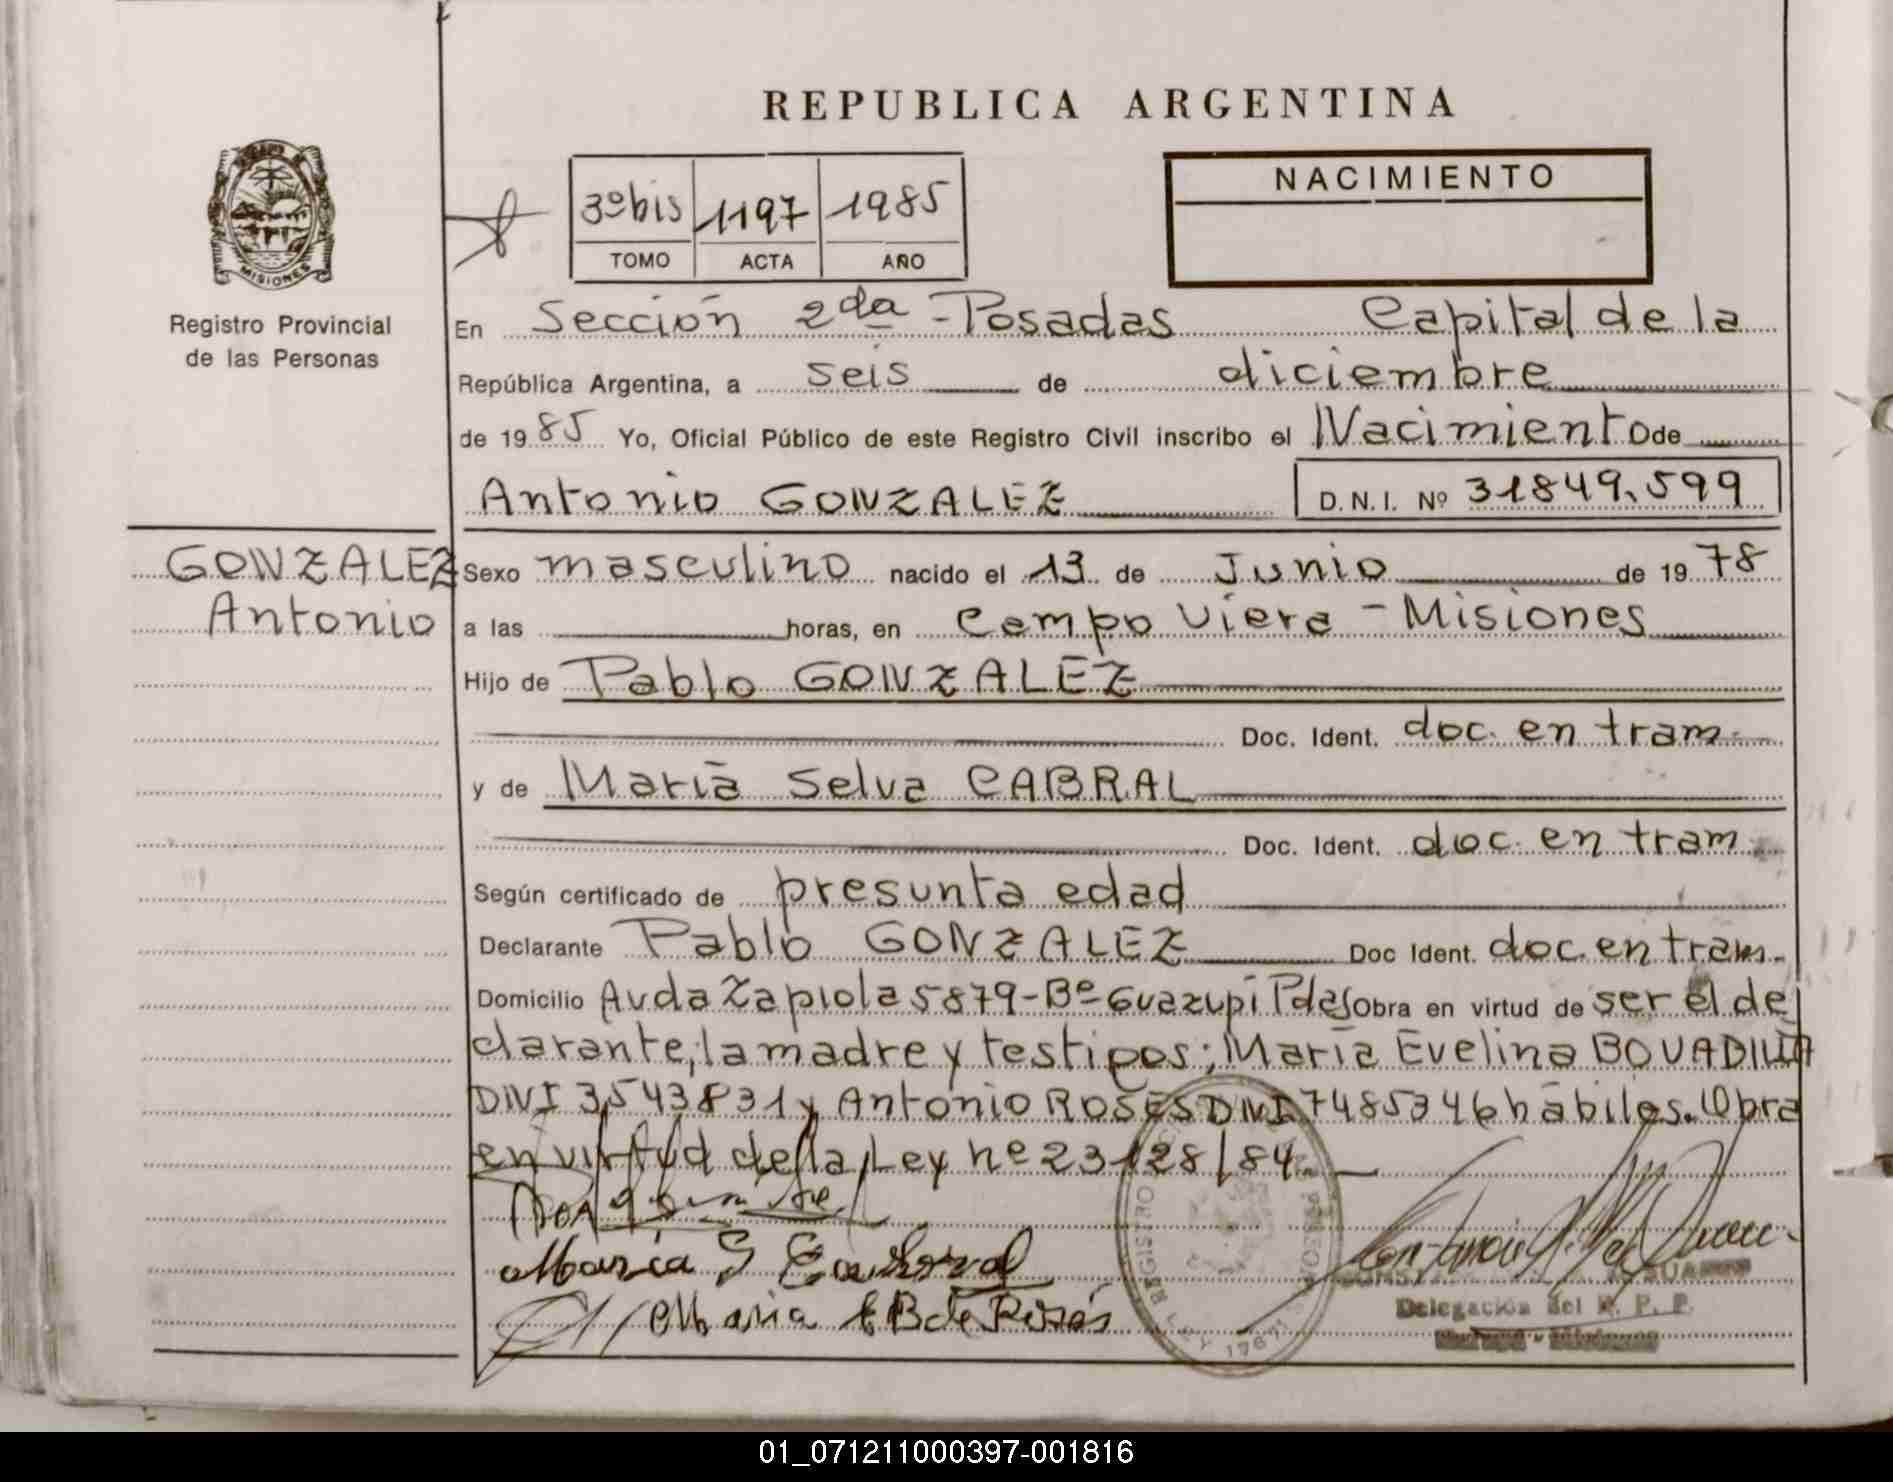 REPUBLICA ARGENTINA
MISIONES
Registro Provincial
de las Personas
3º bis 1197 1985
TOMO ACTA AÑO
NACIMIENTO
En Sección 2da - Posadas Capital de la
República Argentina, a seis de diciembre
de 1985 Yo, Oficial Público de este Registro Civil inscribo el Nacimiento de
Antonio GONZALEZ D.N.I. Nº 31849.599
GONZALEZ
Antonio
Sexo masculino nacido el 13 de Junio de 1978
a las horas, en Campo Viera - Misiones
Hijo de Pablo GONZALEZ
Doc. Ident. doc. en tram.
y de María Selva CABRAL
Doc. Ident. doc. en tram
Según certificado de presunta edad
Declarante Pablo GONZALEZ Doc Ident. doc. en tram.
Domicilio Avda Zapiola 5879 - Bº Guazupi Pdas Obra en virtud de ser el de
clarante, la madre y testigos; María Evelina BOVADILLA
DNI 3543831 y Antonio ROSES DNI 7485346 hábiles. Obra
en virtud de la Ley nº 23128/84
María S Cabral
Maria E B de Rosés
REGISTRO
Delegación del R. P. P.
01_071211000397-001816